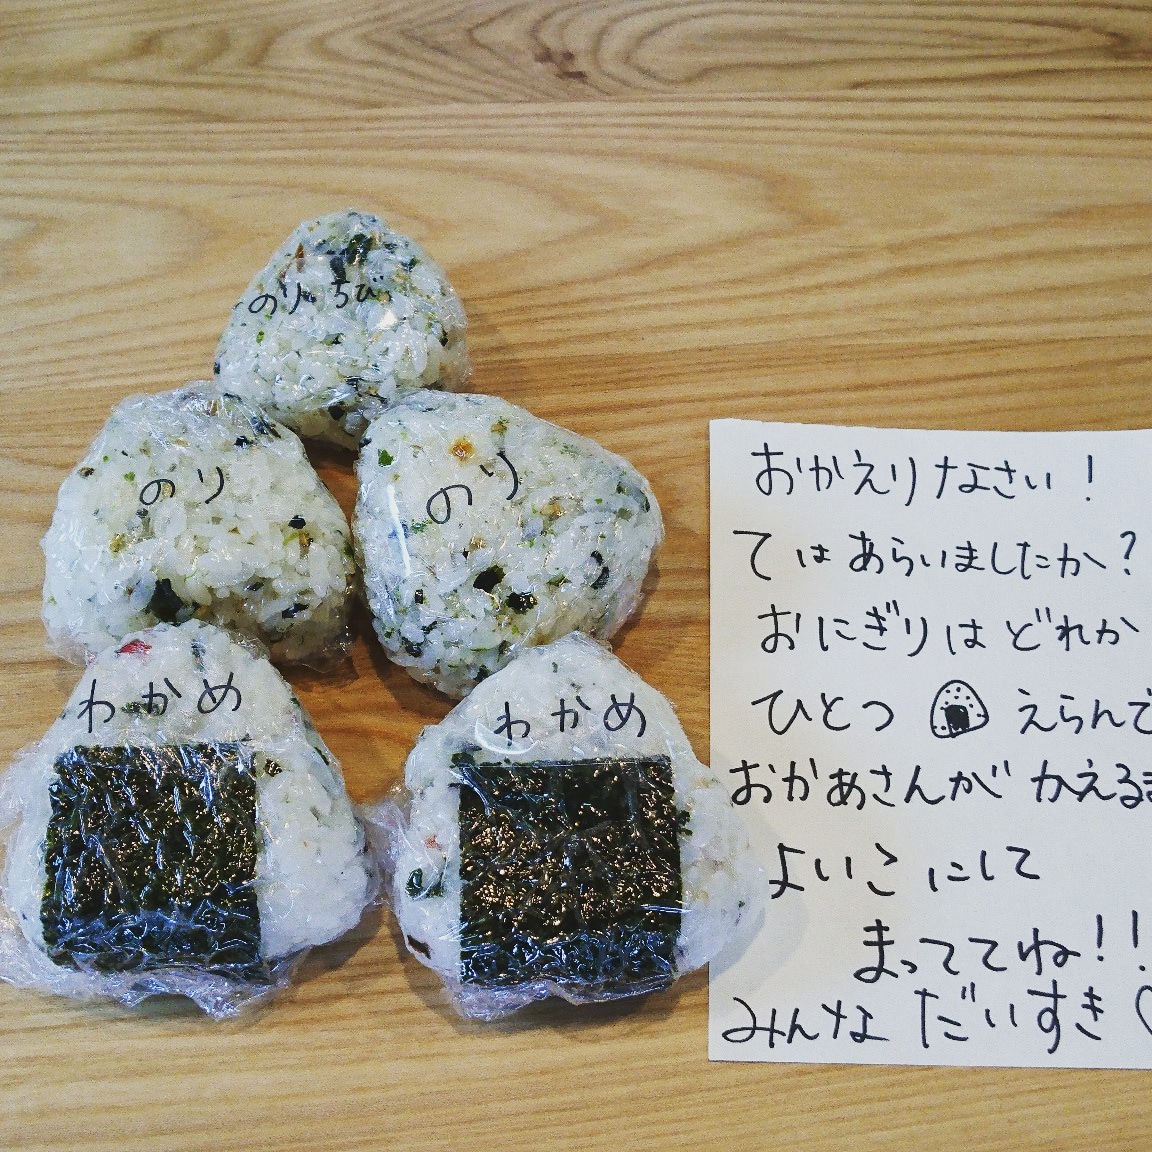 のり ちび
のり
のり
わかめ
わかめ
おかえりなさい！
てはあらいましたか？
おにぎりはどれか
ひとつ えらんで
おかあさんが かえるま
よいこにして
まっててね！！
みんな だいすき♡